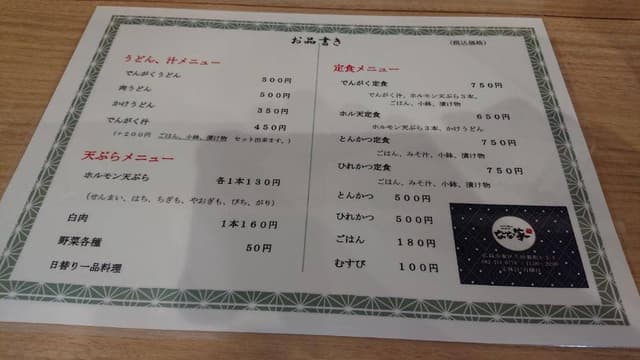 お品書き
(税込価格)
うどん、汁メニュー
でんがくうどん 500円
肉うどん 500円
かけうどん 350円
でんがく汁 450円
(+200円 ごはん、小鉢、漬け物 セット出来ます。)
天ぷらメニュー
ホルモン天ぷら 各1本130円
(せんまい、はち、ちぎも、やおぎも、びち、がり)
白肉 1本160円
野菜各種 50円
日替り一品料理
定食メニュー
でんがく定食 750円
でんがく汁、ホルモン天ぷら3本、
ごはん、小鉢、漬け物
ホル天定食 650円
ホルモン天ぷら3本、かけうどん
とんかつ定食 750円
ごはん、みそ汁、小鉢、漬け物
ひれかつ定食 750円
ごはん、みそ汁、小鉢、漬け物
とんかつ 500円
ひれかつ 500円
ごはん 180円
むすび 100円